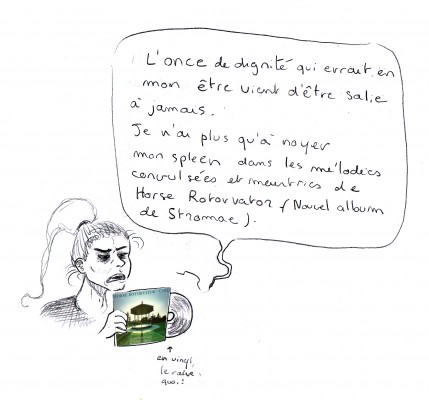 L'once de dignité qui errait en
mon être vient d'être salie
à jamais.
Je n'ai plus qu'à noyer
mon spleen dans les mélodies
convulsées et meurtries de
Horse Rotorvator (Nouvel album
de Stromae).
HORSE ROTORVATOR
en vinyl,
le rêve
quoi !